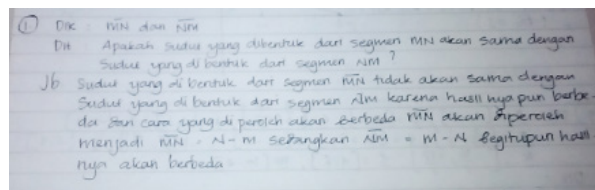 ① Dik M̅N̅ dan N̅m̅
Dit Apakah sudut yang dibentuk dari segmen MN akan sama dengan
Sudut yang di bentuk dari segmen NM ?
Jb Sudut yang di bentuk dari segmen M̅N̅ tidak akan sama dengan
Sudut yang di bentuk dari segmen Nm karena hasil nya pun berbe-
da dan cara yang di peroleh akan berbeda M̅N̅ akan diperoleh
menjadi M̅N̅ = N-m sedangkan N̅m̅ = m - N begitupun hasil
nya akan berbeda